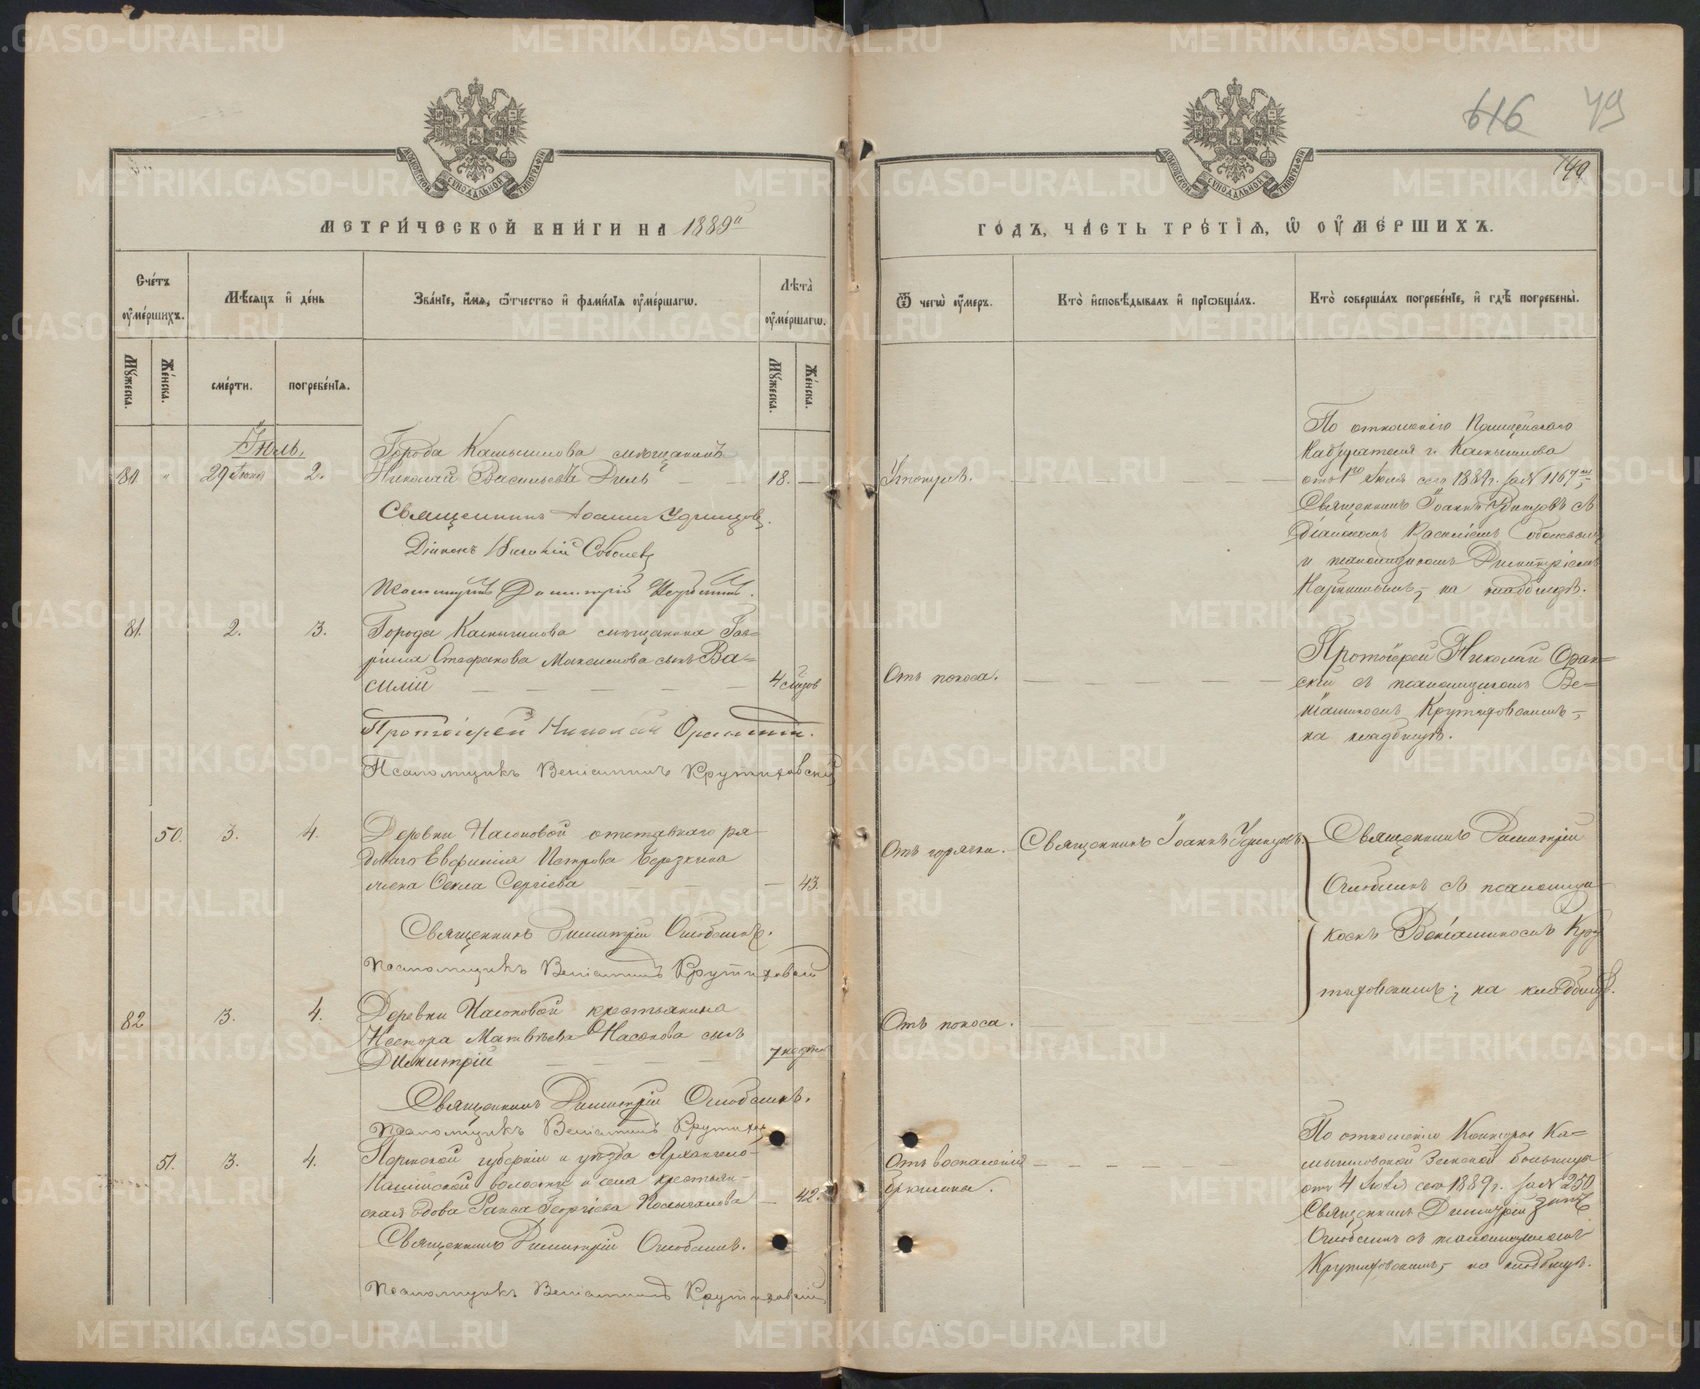 616 49
149
МЕТРИ́ЧЕСКОЙ КНИ́ГИ НА 1889й
ГО́ДЪ, ЧА́СТЬ ТРЕ́ТІѦ, Ѡ ОУМЕ́РШИХЪ.
Сче́тъ оумершихъ.
Мѣсяцъ и де́нь
Зва́ніе, и́мя, ѿчество и фами́лія оумершаго.
Лѣта̀ оумершаго.
Ѿ чего̀ оумеръ.
Кто̀ исповѣдывалъ и пріобща́лъ.
Кто̀ соверша́лъ погребе́ніе, и гдѣ погребены̀.
Мужеска.
Же́нска.
сме́рти.
погребе́нія.
Мужеска.
Же́нска.
Іюль.
80 " 29 Іюня 2.
Города Камышлова мѣщанинъ
Николай Васильевъ Диль — — 18. —
Утонулъ.
По отношенію Полицейскаго
Надзирателя г. Камышлова
отъ 1го Іюля сего 1889 г. за № 1167мъ,
Священникъ Іоаннъ Удинцовъ съ
Діакономъ Василіемъ Соболевымъ
и псаломщикомъ Димитріемъ
на кладбищѣ.
Священникъ Іоаннъ Удинцовъ.
Діаконъ Василій Соболевъ
Псаломщикъ Димитрій
81. 2. 3.
Города Камышлова мѣщанина Гав=
ріила Стефанова Максимова сынъ Ва=
силій — — — — — 4 мѣсяцовъ
Отъ поноса. — — — —
Протоіерей Николай Оран=
скій съ псаломщикомъ Ве=
ніаминомъ Крутиховскимъ,
на кладбищѣ.
Протоіерей Николай Оранскій.
Псаломщикъ Веніаминъ Крутиховскій
50. 3. 4.
Деревни Насоновой отставнаго ря-
доваго Евфимія Петрова Березкина
жена Ѳекла Сергіева — — — 43.
Отъ горячки.
Священникъ Іоаннъ Удинцовъ.
Священникъ Димитрій
съ псаломщи
комъ Веніаминомъ Кру
тиховскимъ; на кладбищѣ.
Священникъ Димитрій
Псаломщикъ Веніаминъ Крутиховскій
82 3. 4.
Деревни Насоновой крестьянина
Нестора Матвѣева Насонова сынъ
Димитрій — — — 7 недѣль
Отъ поноса.
Священникъ Димитрій
Псаломщикъ Веніаминъ Крутихов
51. 3. 4.
Пермской губерніи и уѣзда Архангело-
Пашійской волости и села крестьян-
ская вдова Раиса Георгіева — 42.
Отъ воспаленія — — — —
брюшины.
По отношенію Конторы Ка=
мышловской Земской больницы
отъ 4 Іюля сего 1889 г. за № 250
Священникъ Димитрій зять
съ псаломщикомъ
Крутиховскимъ, на кладбищѣ.
Священникъ Димитрій
Псаломщикъ Веніаминъ Крутиховскій
METRIKI.GASO-URAL.RU